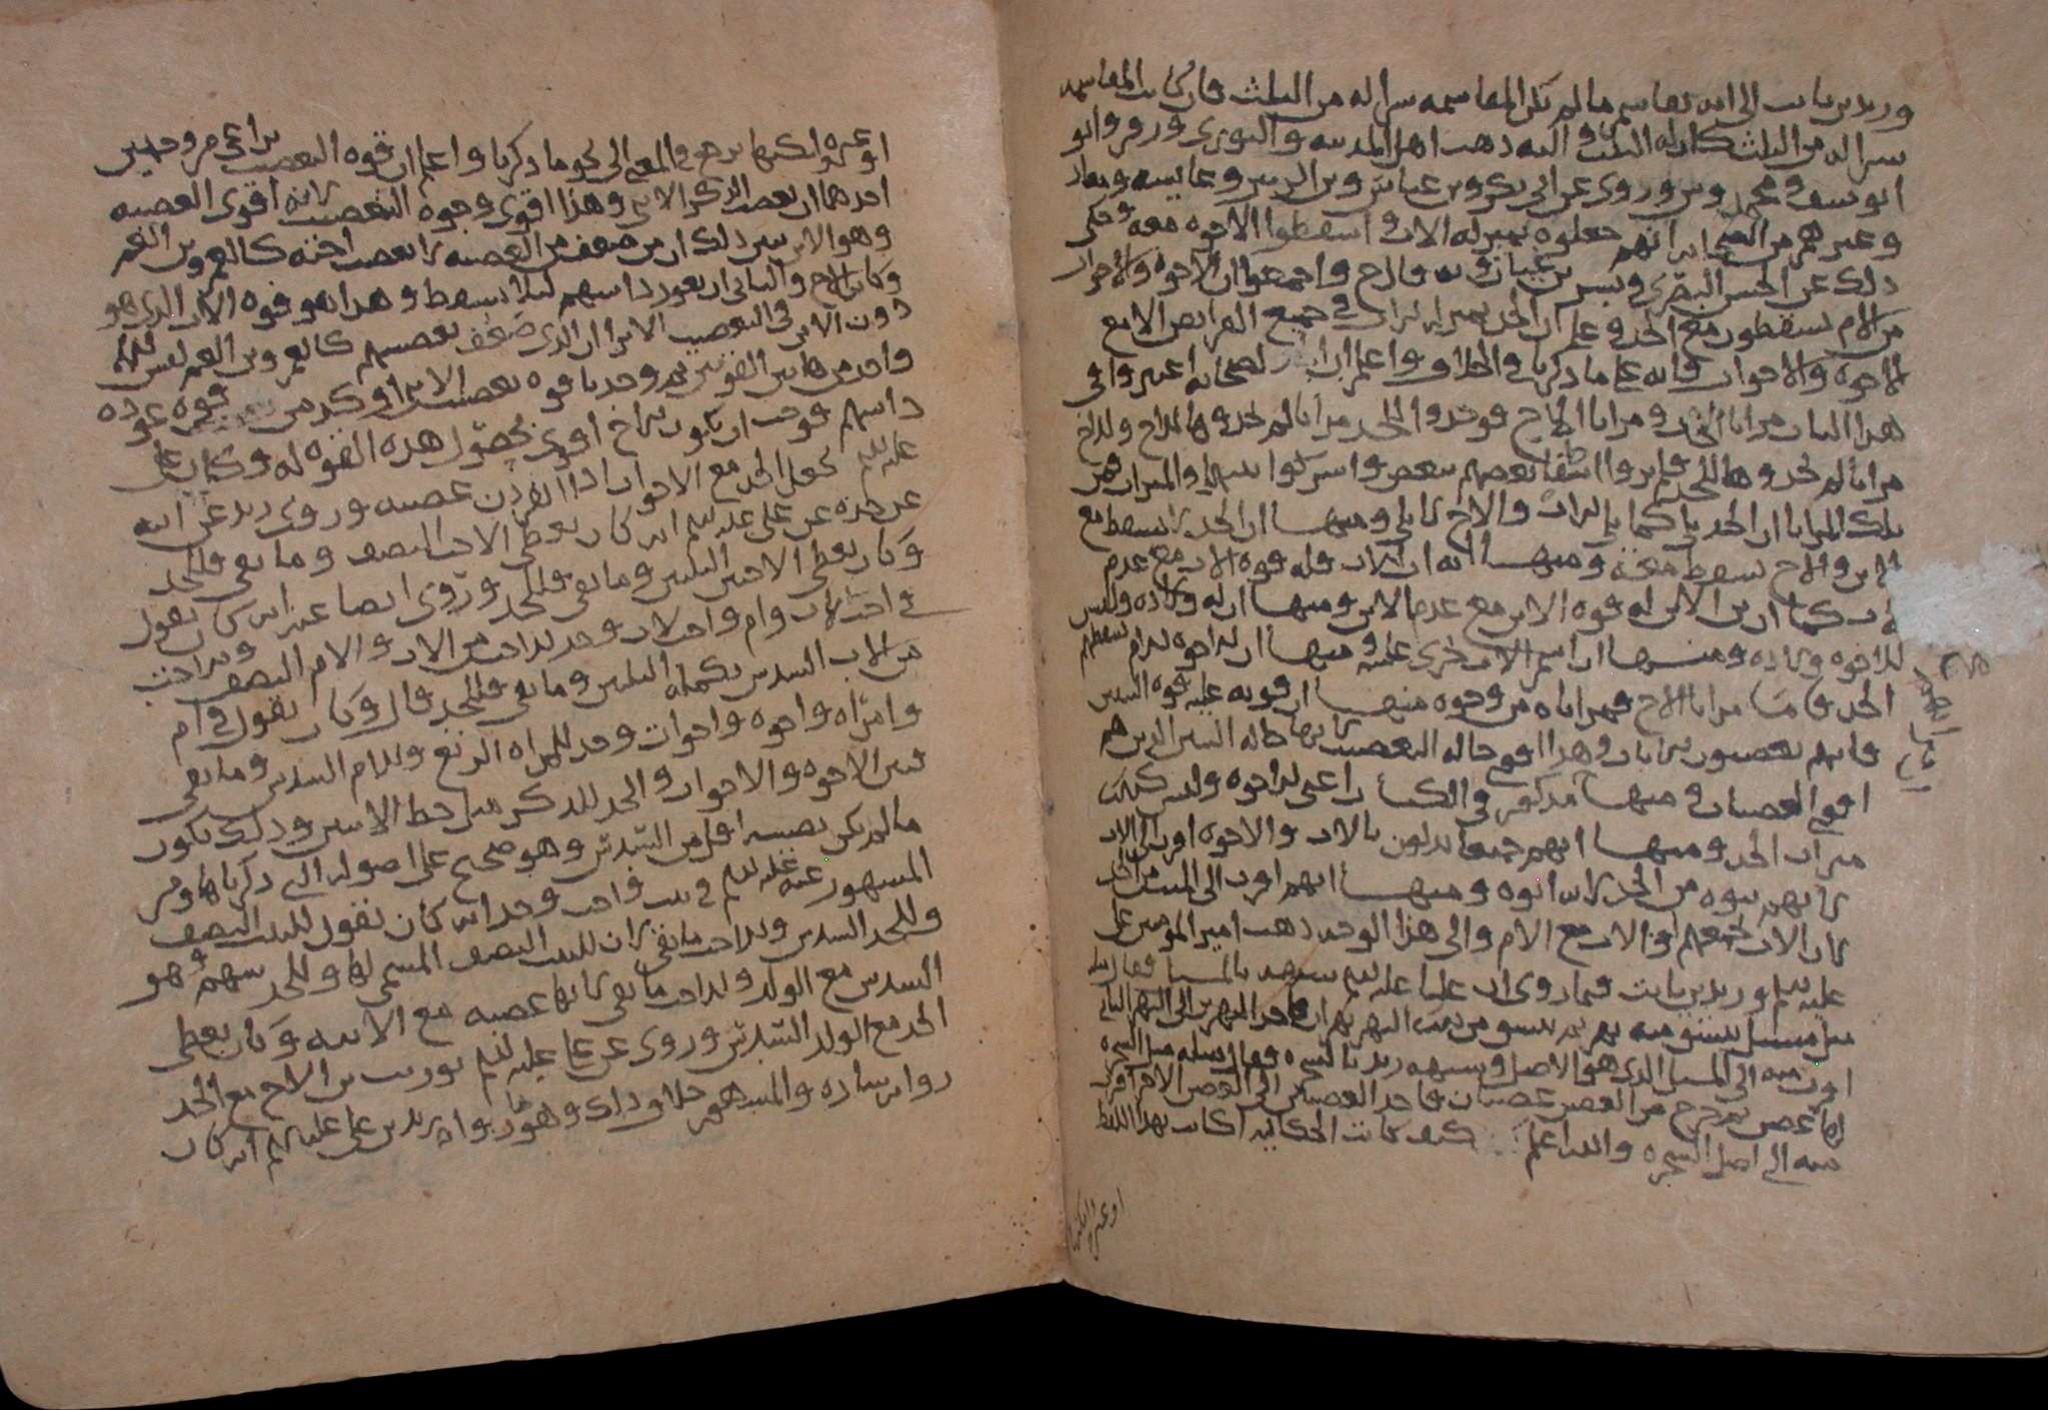 وزيد بن ثابت الى انه يقاسم ما لم تكن المقاسمة شرا له من الثلث فان كانت المقاسمه
شرا له من الثلث كان له الثلث واليه ذهب اهل المدينه والثوري وزفر وابو
ابو يوسف ومحمد وروي عن ابي بكر وبن عباس وبن الزبير وعائشه ومعاذ
وغيرهم من الصحابه انهم جعلوه بمنزله الاب واسقطوا الاخوه معه وحكي
ذلك عن الحسن البصري وبشر بن غياث وبه قال ح واجمعوا ان الاخوه والاخوات
من الام يسقطون مع الجد وعلم ان الجد بمنزله الاب في جميع الفرايض الا مع
الاخوه والاخوات فانه على ما ذكرنا في الخلاف واعلم ان الصحابه اعتبروا في
هذا الباب مزايا الجد ومزايا الاخ فوجدوا للجد مزايا لم يجدوها للاخ وللاخ
مزايا لم يجدوها للجد فلم يروا اسقاط بعضهم ببعض واشركوا بينهما في الميراث فمن
تلك المزايا ان الجد يلي كما يلي الاب والاخ لا يلي ومنها ان الجد لا يسقط مع
الابن والاخ يسقط معه ومنها انه اب الاب فله قوه الاب مع عدم
الاب كما ان بن الابن له قوه الابن مع عدم الابن ومنها ان له ولاده وليس
للاخوه ولاده ومنها ان اسم الاب يجري عليه ومنها ان الاخوه للام يسقطهم
الجد فاما مزايا الاخ فمزاياه من وجوه منها ان قوته عليه قوه البنين
فانهم يعصبون الاناث وهذا اقوى حالة التعصيب لانها حاله البنين الذين هم
اقوى العصبات ومنها مذكور في الكتاب اعني الاخوه وليس كذلك
ميراث الجد ومنها انهم جميعا يدلون بالاب والاخوه اقرب الى الاب
لانهم بنوه من الجد لانه ابوه ومنها انهم اقرب الى الميت من الجد
لان الاب يجمعهم او الاب مع الام والى هذا الوجه ذهب امير المومنين علي
عليه السلم وزيد بن ثابت فيما روي ان عليا عليه السلم شبهه بالمسيل فقال
سيل مسيل ينشق منه نهر ثم ينشق من ذلك النهر نهران فاحد النهرين الى النهر الثاني
اقرب منه الى المسيل الذي هو الاصل وشبهه زيد بالشجره فقال مثله مثل الشجره
لها غصن ثم خرج من الغصن غصنان فاحد الغصنين الى الغصن الاخر اقرب
منه الى اصل الشجره والله اعلم كيف كانت الحكايه اكانت بهذا اللفظ
او غيره ولكنها
او غيره ولكنها ترجع في المعنى الى نحو ما ذكرنا واعلم ان قوه التعصيب تراعى من وجهين
احدهما ان يعصب الذكر الانثى وهذا اقوى وجوه التعصيب لانه اقوى العصبه
وهو الابن يبين ذلك ان من ضعف من العصبه لا يعصب اخته كالعم وبن العم
وكان الاخ والثاني ان يعود ذا سهم لئلا يسقط وهذا هو قوه الاب الذي هو
دون الابن في التعصيب الا ترا ان الذي ضعف تعصيبهم كالعم وبن العم ليس لهم
واحد من هاتين القوتين ثم وجدنا قوه تعصيب الابن اوكد من قوه عوده
ذا سهم فوجب ان يكون الاخ اقوى لحصول هذه القوه له وكان علي
عليه السلم يجعل الجد مع الاخوات اذا انفردن عصبه وروى زيد عن ابيه
عن جده عن علي عليه السلم انه كان يعطي الاخت النصف وما بقي فللجد
وكان يعطي الاختين الثلثين وما بقي فللجد وروى ايضا عنه انه كان يقول
في اخت لاب وام واخت لاب وجد للاخت من الاب والام النصف وللاخت
من الاب السدس تكملة الثلثين وما بقي فللجد قال وكان يقول في ام
وامراه واخوه واخوات وجد للمراه الربع وللام السدس وما بقي
فبين الاخوه والاخوات والجد للذكر مثل حظ الانثيين وذلك يكون
ما لم يكن نصيبه اقل من السدس وهو صحيح على اصوله التي ذكرناها ومن
المشهور عنه عليه السلم في بنت واخت وجد انه كان يقول للبنت النصف
وللجد السدس وللاخت ما بقي لان للبنت النصف المسمى لها وللجد سهم وهو
السدس مع الولد وللاخت ما بقي لانها عصبه مع الابنه وكان يعطي
الجد مع الولد السدس وروي عن علي عليه السلم توريث بن الاخ مع الجد
روايه شاذه والمشهور خلاف ذلك وهو ما رواه زيد بن علي عليه السلم انه كان